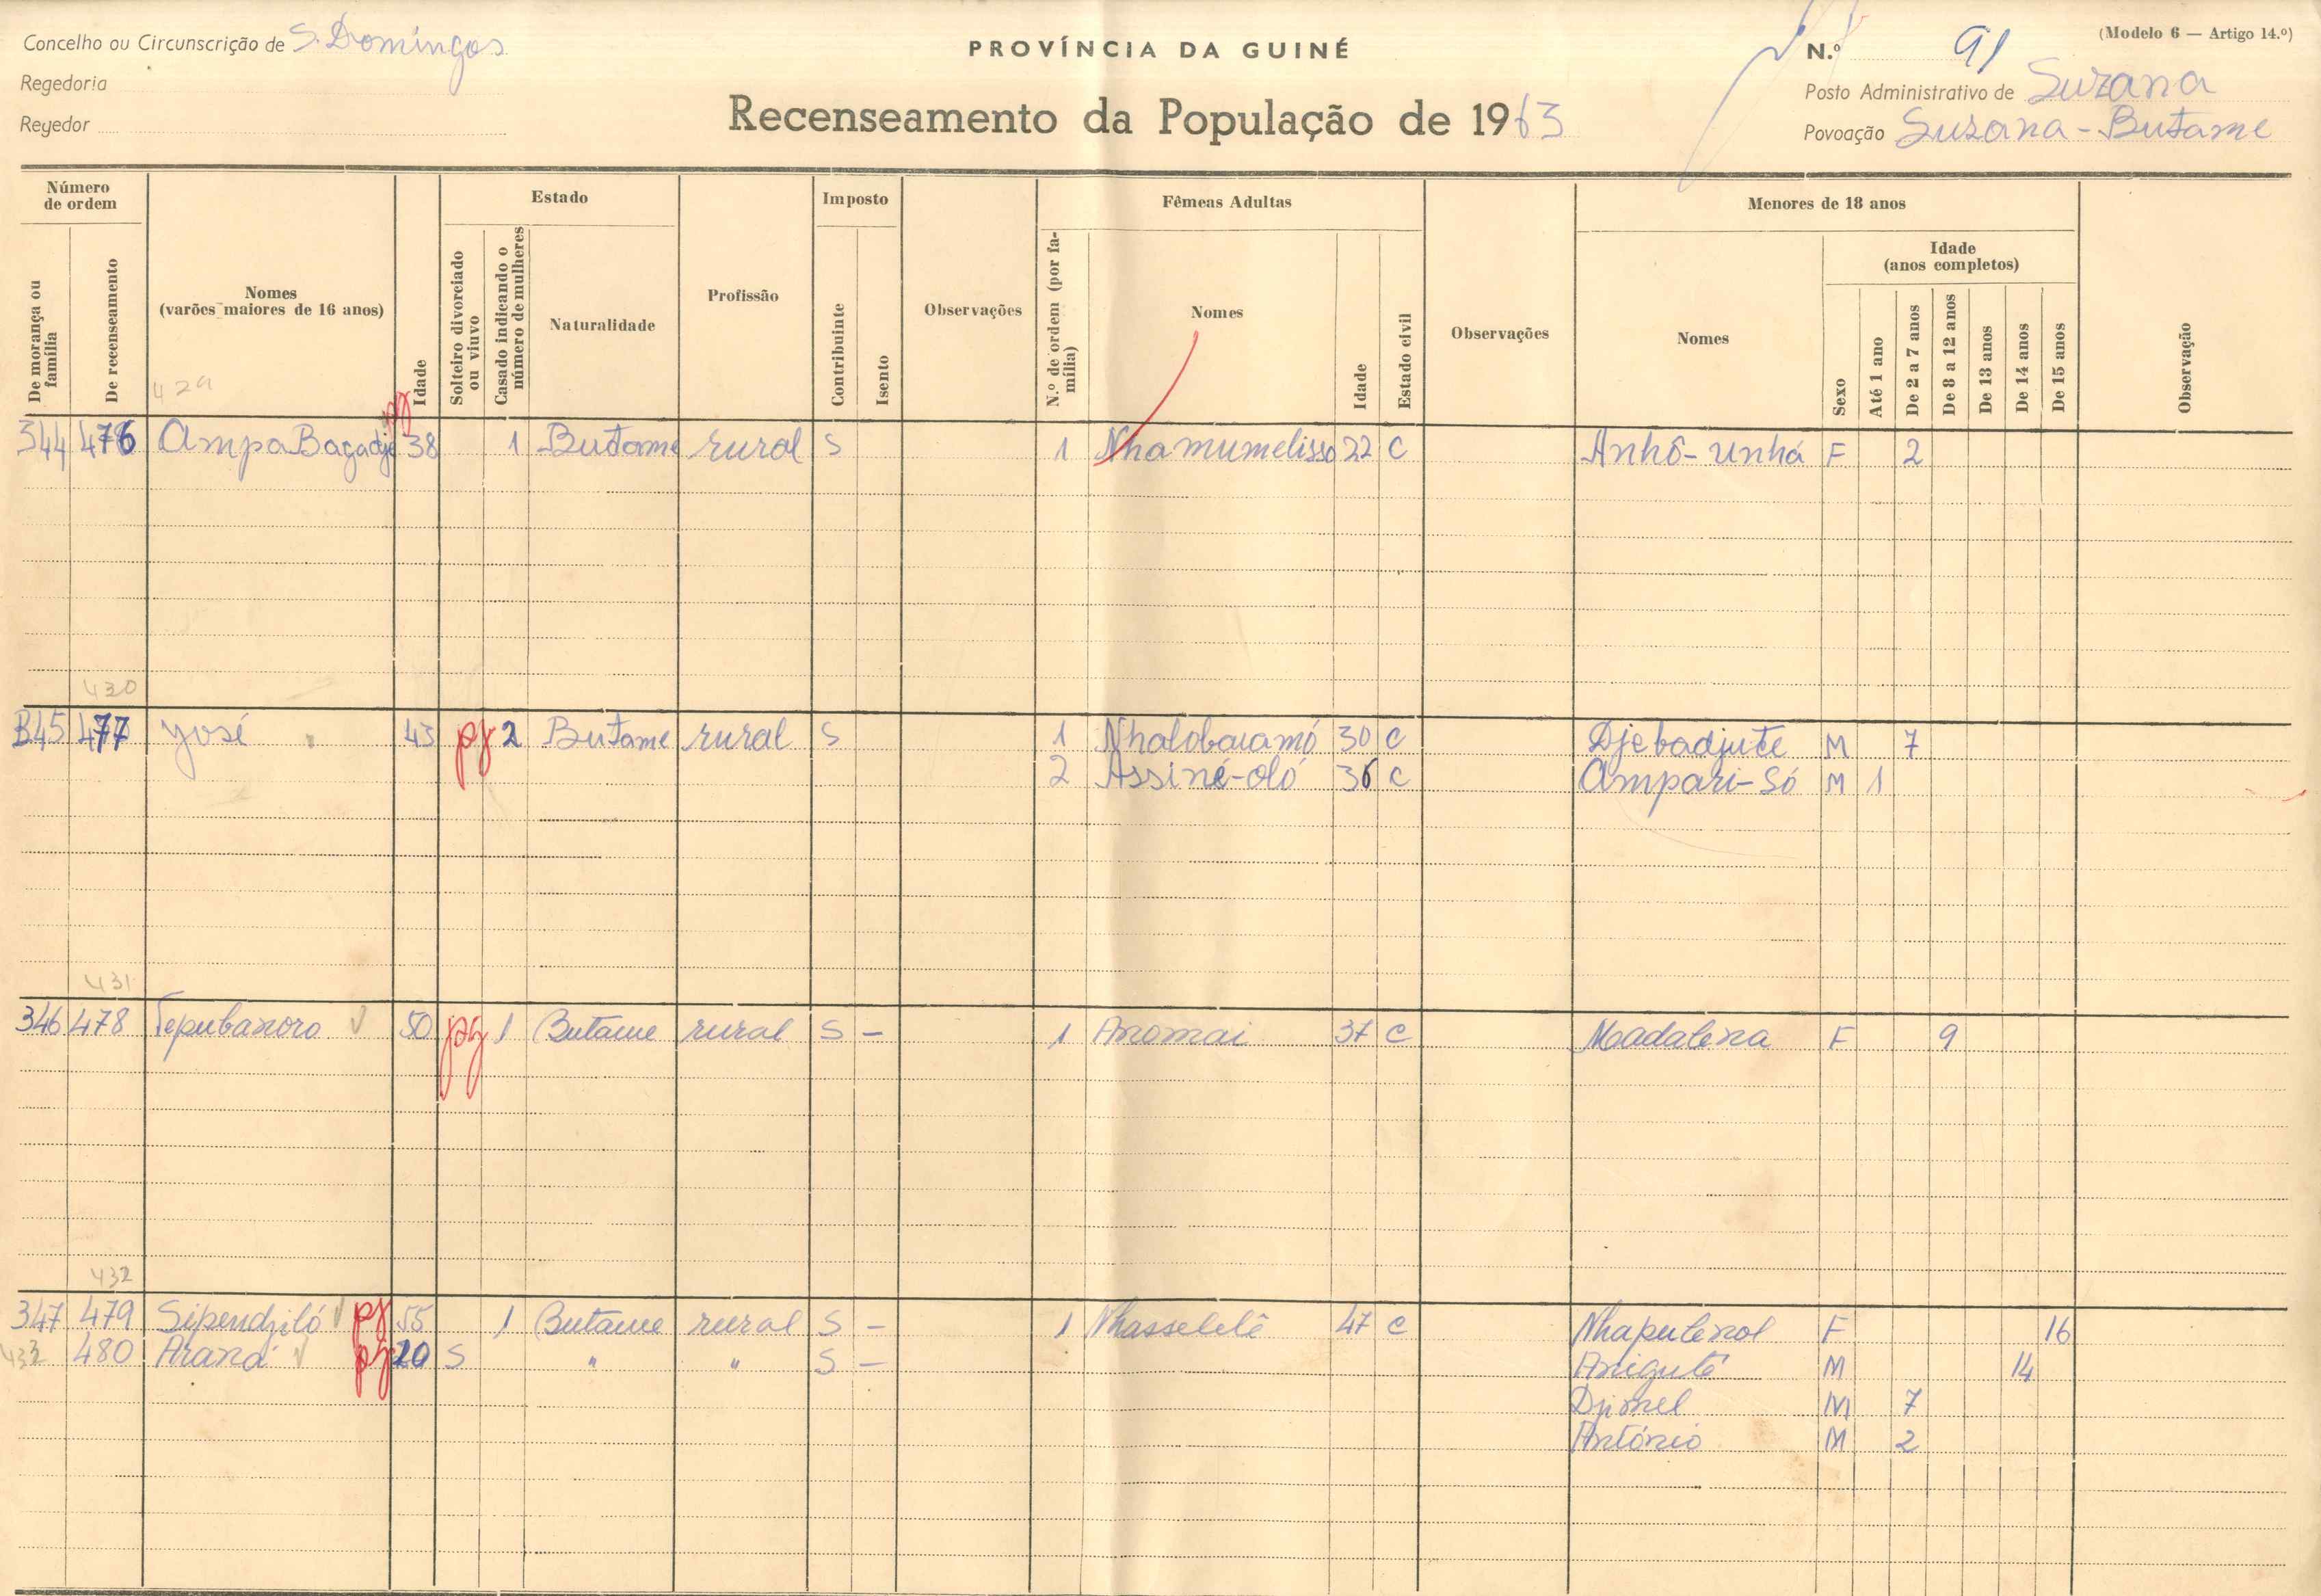 Concelho ou Circunscrição de S. Domingos
PROVÍNCIA DA GUINÉ
N.º 91
(Modelo 6 — Artigo 14.º)
Regedoria
Posto Administrativo de Suzana
Regedor
Recenseamento da População de 1963
Povoação Suzana - Butame
Número de ordem
Estado
Imposto
Fêmeas Adultas
Menores de 18 anos
Idade (anos completos)
De morança ou família
De recenseamento
Nomes (varões maiores de 16 anos)
Idade
Solteiro divorciado ou viuvo
Casado indicando o número de mulheres
Naturalidade
Profissão
Contribuinte
Isento
Observações
N.º de ordem (por família)
Nomes
Idade
Estado civil
Observações
Nomes
Sexo
Até 1 ano
De 2 a 7 anos
De 8 a 12 anos
De 13 anos
De 14 anos
De 15 anos
Observação
429
344 476 Ampa Bagadje pg 38 1 Butame rural S 1 Nhamumelisso 22 C Anhô-unhá F 2
430
345 477 José 43 pg 2 Butame rural S 1 Nhalobaiamó 30 C Djebadjute M 7
2 Assiné-oló 36 C Ampari-Só M 1
431
346 478 Tepubanoro 50 pg 1 Butame rural S - 1 Anomai 37 C Madalena F 9
432
347 479 Sipendjiló pg 55 1 Butame rural S - 1 Nhasselelê 47 C Nhaputenol F 16
433 480 Araná pg 20 S " " S - Anigutô M 14
Djinel M 7
António M 2